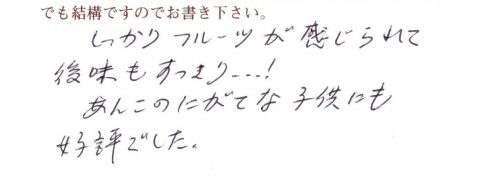 でも結構ですのでお書き下さい。
しっかりフルーツが感じられて
後味もすっきり---!
あんこのにがてな子供にも
好評でした。